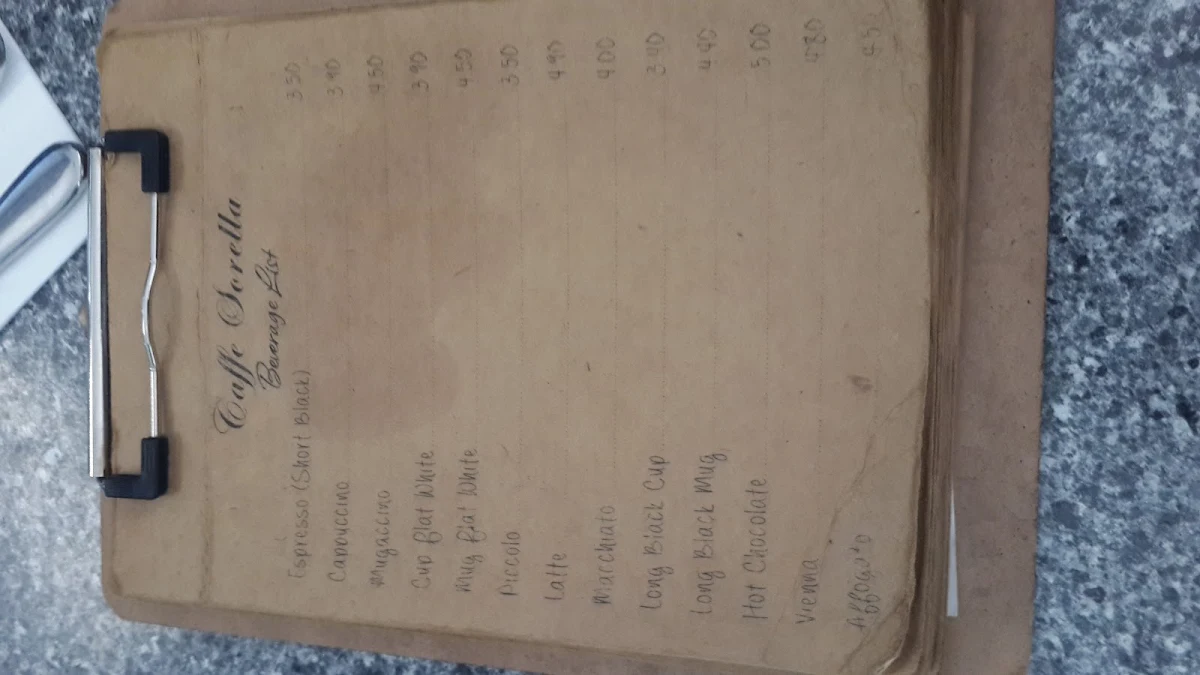 Caffe Sorella
Beverage List
Espresso (Short Black) 3 50
Cappuccino 3 90
Mugaccino 4 50
Cup Flat White 3 90
Mug Flat White 4 50
Piccolo 3 50
Latte 4 90
Macchiato 4 00
Long Black Cup 3 40
Long Black Mug 4 40
Hot Chocolate 5 00
Vienna 4 80
Affogato